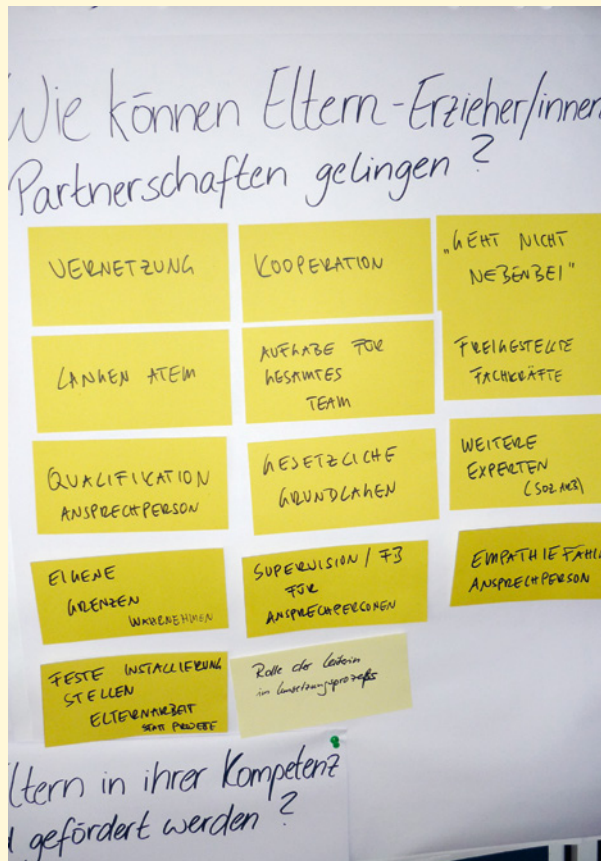 Wie können Eltern-Erzieher/innen
Partnerschaften gelingen?
VERNETZUNG
KOOPERATION
„GEHT NICHT
NEBENBEI"
LANGEN ATEM
AUFGABE FÜR
GESAMTES
TEAM
FREIGESTELLTE
FACHKRÄFTE
QUALIFIKATION
ANSPRECHPERSON
GESETZLICHE
GRUNDLAGEN
WEITERE
EXPERTEN
(SOZ. ARB)
EIGENE
GRENZEN
WAHRNEHMEN
SUPERVISION / FB
FÜR
ANSPRECHPERSONEN
EMPATHIEFÄHIG
ANSPRECHPERSON
FESTE INSTALLIERUNG
STELLEN
ELTERNARBEIT
STATT PROJEKTE
Rolle der Leiterin
im Umsetzungsprozeß
ltern in ihrer Kompetenz
d gefördert werden?